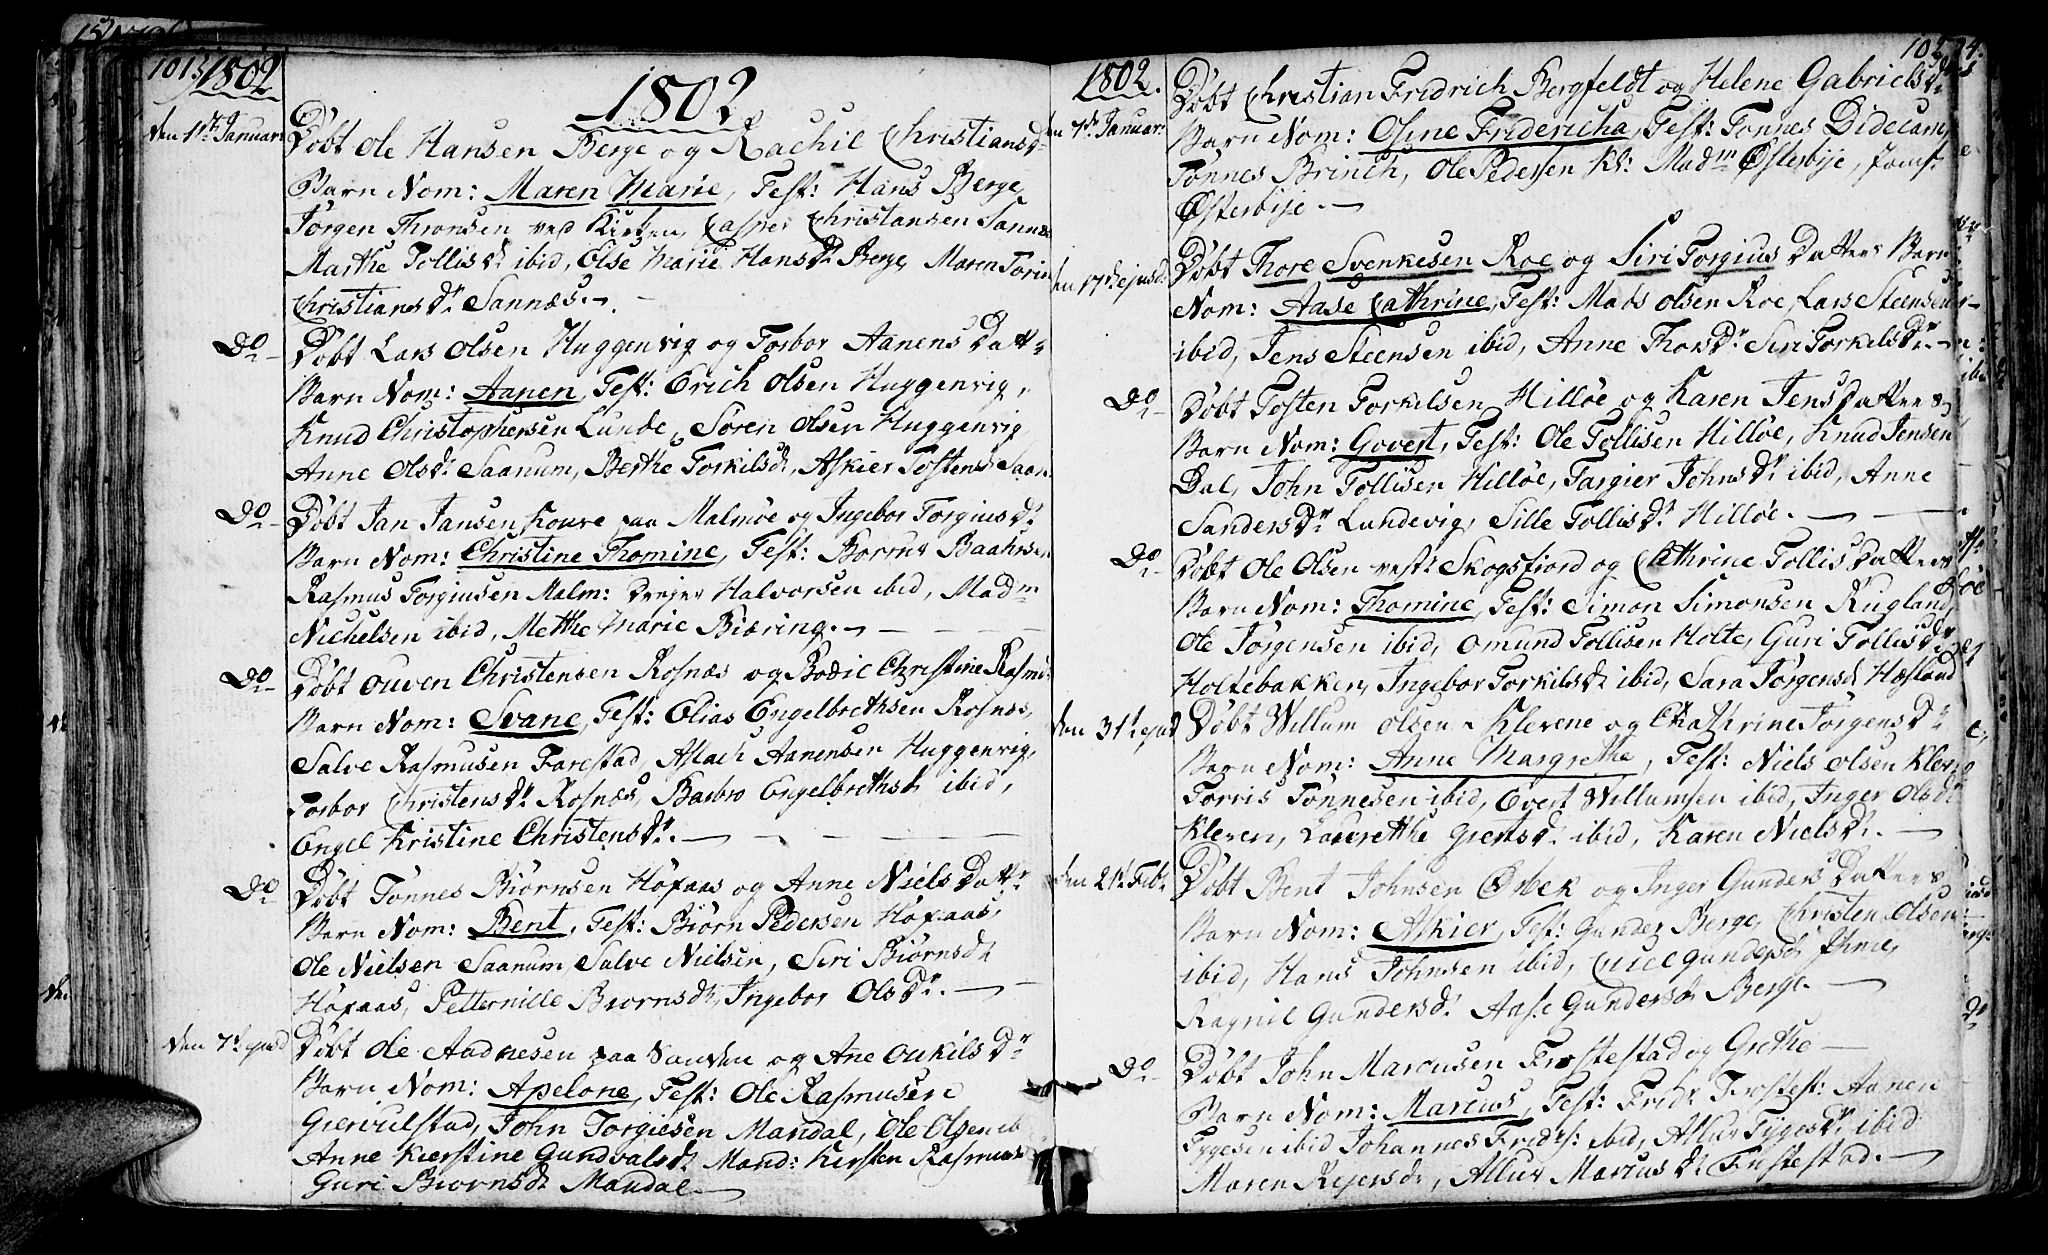 1013
1802
1802
den 1ste Januar
Døbt Ole Hansen Berge og Rachil Christiansdr
Barn Nom: Maren Marie, Test: Hans Berge,
Jørgen Thronsen ved Kirken, Casper Christiansen Sannæs
Marthe Tollisdr ibid, Else Marie Hansdr Berge, Maren Torine
Christiansdr Sannæs.
Do
Døbt Lars Olsen Huggenvig og Torbor Aanens Dattr
Barn Nom: Aanen, Test: Erich Olsen Huggenvig,
Knud Christophersen Lunde, Søren Olsen Huggenvig
Anne Olsdr Saanum, Berthe Torkilsdr, Askier Tostensdr Saan.
Do
Døbt Jan Jansen Koure paa Malmøe og Ingebor Torgiusdr
Barn Nom: Christine Thomine, Test: Baahnsen
Rasmus Torgiusen Malm: Drejer Halvorsen ibid, Madm
Nichelsen ibid, Methe Marie Biæring.
Do
Døbt Ouven Christensen Rosnæs og Bodil Christine Rasmusdr
Barn Nom: Svane, Test: Elias Engelbrethsen Rosnæs,
Salve Rasmusen Farestad, Aslach Aanensen Huggenvig,
Torbor Christensdr Rosnæs, Barbro Engelbrethsdr ibid,
Engel Kristine Christensdr.
Do
Døbt Tønnes Biørnsen Høfaas og Anne Niels Dattr
Barn Nom: Bent, Test: Biørn Pedersen Høfaas,
Ole Nielsen Saanum, Salve Nielsen, Siri Biørnsdr
Høfaas, Petternille Biørnsdr, Ingebor Olsdr.
den 7de ejusd
Døbt Ole Aadnesen paa Sanden og Ane Oukilsdr
Barn Nom: Apelone, Test: Ole Rasmusen
Giervulstad, John Torgiesen Mandal, Ole Olsen ib
Anne Kierstine Gundvalsdr Mand: Kirsten Rasmusdr
Guri Biørnsdr Mandal.
1802.
den 7de Januar
Døbt Christian Fredrich Bergfeldt og Helene Gabrielsdr
Barn Nom: Osine Fridericha, Test: Tønnes Didecam,
Tønnes Brinch, Ole Pedersen Kl: Madm Østerbye, Jomf:
Østerbye.
den 17de ejusd
Døbt Thore Svenkesen Roe og Siri Torgius Datter Barn
Nom: Aase Cathrine, Test: Mads Olsen Roe, Lars Steensen
ibid, Jens Steensen ibid, Anne Thorsdr Siri Torkilsdr
Do
Døbt Tosten Torkilsen Hilløe og Karen Jens Datter
Barn Nom: Govert, Test: Ole Tollisen Hilløe, Knud Jensen
Dal, John Tollisen Hilløe, Targier Johnsdr ibid, Anne
Sandersdr Lundevig, Sille Tollisdr Hilløe.
Do
Døbt Ole Olsen vestr Skogsfiord og Cathrine Tollis Datter
Barn Nom: Thomine, Test: Simon Simonsen Rugland,
Ole Jørgensen ibid, Omund Tollisen Holte, Guri Tollisdr
Holtebakken, Ingebor Torkilsdr ibid, Sara Jørgensdr Hæsland
den 31te ejusd
Døbt Willum Olsen Klevene og Chathrine Jørgensdr
Barn Nom: Anne Margrethe, Test: Niels Olsen Kleven
Torris Tønnesen ibid, Evert Willumsen ibid, Inger Olsdr
Kleven, Laurethe Giertsdr ibid, Karen Nielsdr.
den 21de Febr
Døbt Bent Johnsen Ørbek og Inger Gunders Datter
Barn Nom: Askier, Test: Gunder Berge, Christen Olsen
ibid, Hans Johnsen ibid, Gundersdr
Ragnil Gundersdr Aase Gundersdr Berge.
Do
Døbt John Marcusen Frostestad og Grethe
Barn Nom: Marcus, Test: Fridr Frostest: Aanen
Tygesen ibid Johannes Fridrs: ibid, Allur Tygesdr ibid
Maren Rejersdr, Allur Marcusdr Frostestad.